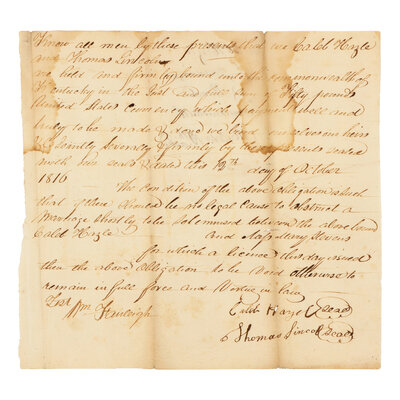 Know all men by these presents that we Caleb Hazle
and Thomas Lincoln
are held and firm bound unto the commonwealth of
Kentucky in the Just and full sum of Fifty pounds
United States Currency which payment well and
truly to be made & and we bind ourselves our heirs
Jointly severally & firmly by these presents sealed
with our seals & date this 12th day of October
1816
The Condition of the above obligation is such
that if there should be no legal cause to obstruct a
marriage shortly to be solemnised between the above bound
Caleb Hazle and Mary Stevens
for which a licence this day issued
then the above obligation to be Void otherwise to
remain in full force and Virtue in law
Test
Wm Fairleigh
Caleb Hazle (Seal)
Thomas Lincoln (Seal)